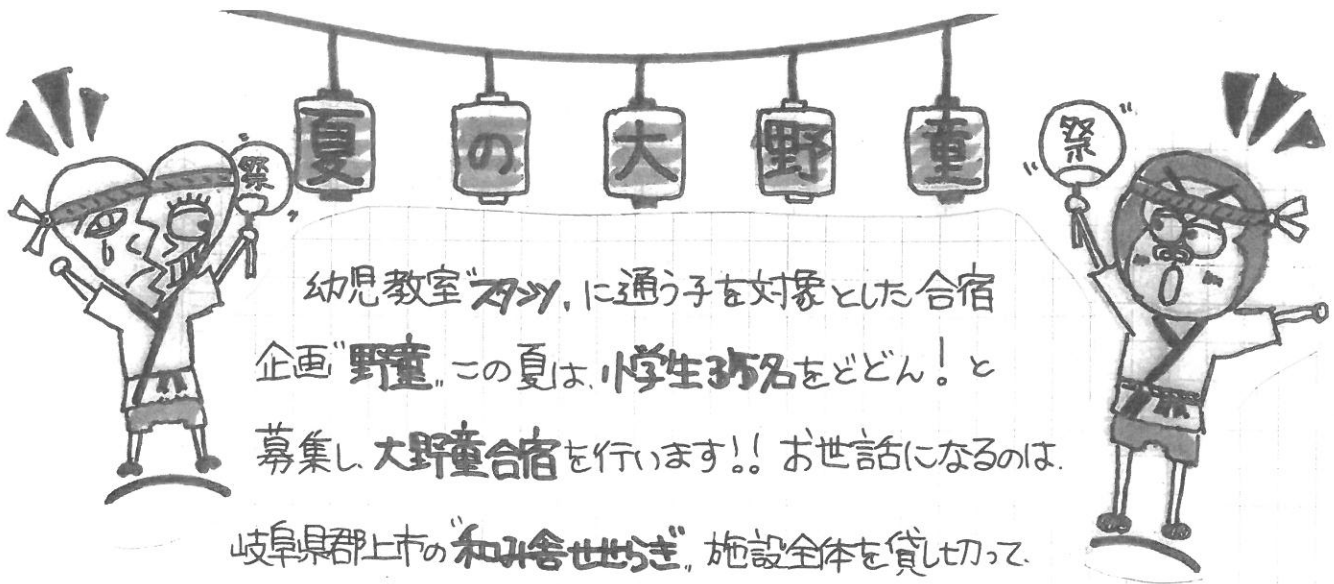 夏の大野童
祭
祭
幼児教室"スタンツ"に通う子を対象とした合宿
企画"野童"この夏は、小学生35名をどどん!と
募集し、大野童合宿を行います!!お世話になるのは、
岐阜県郡上市の"和み舎せせらぎ"施設全体を貸し切って、